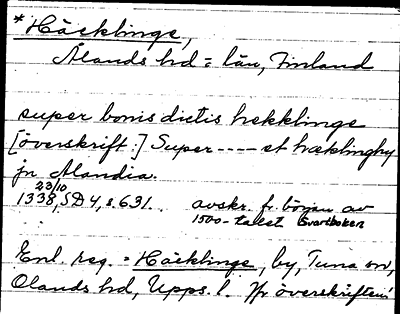 * Häcklinge,
Ålands hd = län, Finland
super bonis dictis hekklinge
[överskrift:] Super ---- et hæklinghy
jn Alandia.
23/10
1338, SD 4, s. 631. avskr. fr. början av
1500-talet Svartboken
Enl. reg. = Häcklinge, by, Tuna sn,
Olands hd, Upps. l. Jfr överskriften!